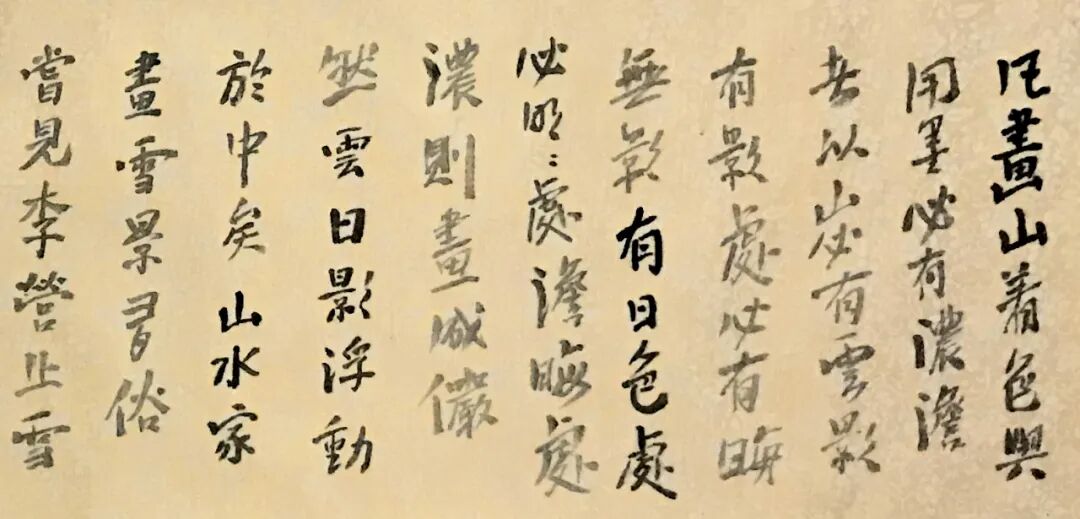 凡畫山着色與
用墨必有濃澹
者以山必有雲影
有影處必有晦
無影有日色處
必明〻處澹晦處
濃則畫成儼
然雲日影浮動
於中矣山水家
畫雪景多俗
嘗見李營丘雪